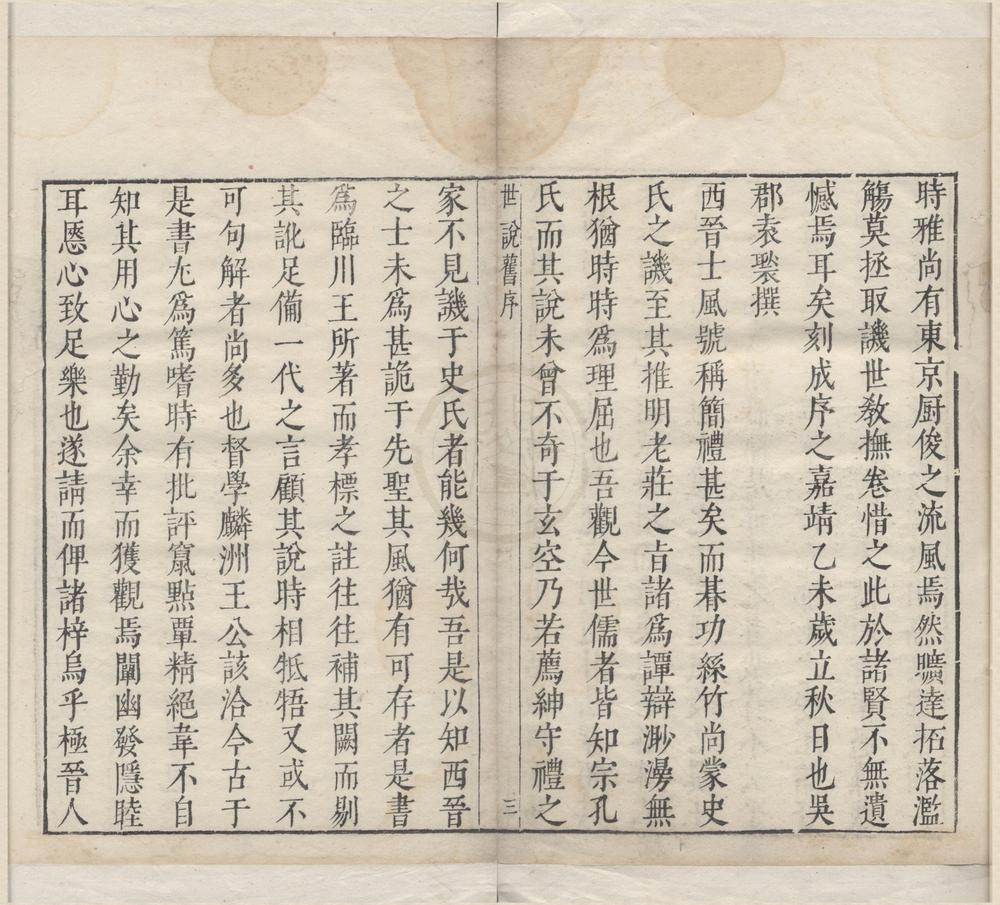 時雅尚有東京厨俊之流風焉然曠達拓落濫
觴莫拯取譏世敎撫卷惜之此於諸賢不無遺
憾焉耳矣刻成序之嘉靖乙未歲立秋日也吳
郡袁褧撰
西晉士風號稱簡禮甚矣而朞功絲竹尚蒙史
氏之譏至其推明老莊之㫖諸爲譚辯渺漫無
根猶時時爲理屈也吾觀今世儒者皆知宗孔
氏而其說未曾不奇于玄空乃若薦紳守禮之
世說舊序 三
家不見譏于史氏者能幾何㢤吾是以知西晉
之士未爲甚詭于先聖其風猶有可存者是書
爲臨川王所著而孝標之註徃徃補其闕而剔
其訛足備一代之言顧其說時相牴牾又或不
可句解者尚多也督學麟洲王公該洽今古于
是書尤爲篤嗜時有批評竄㸃覃精絕韋不自
知其用心之勤矣余幸而獲觀焉闡幽發隱睦
耳慝心致足樂也遂請而俾諸梓烏乎極晉人